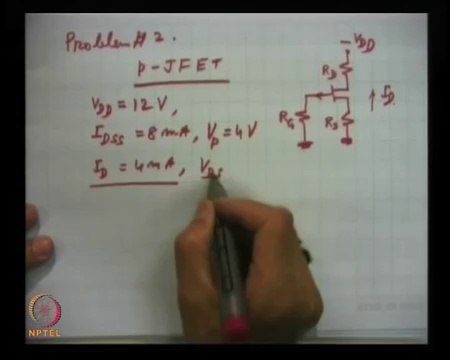 Problem # 2.
p-JFET
V_DD = 12 V,
I_DSS = 8 mA, V_p = 4V
I_D = 4 mA, V_DS
-V_DD
R_D
I_D
R_G
R_S
NPTEL